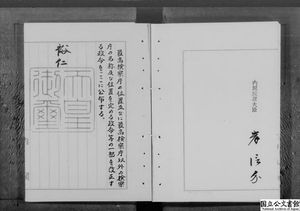 最高検察庁の位置並びに最高検察庁以外の検察
庁の名称及び位置を定める政令等の一部を改正す
る政令をここに公布する。
裕仁
天皇
御璽
内閣総理大臣
岸信介
国立公文書館
National Archives of Japan